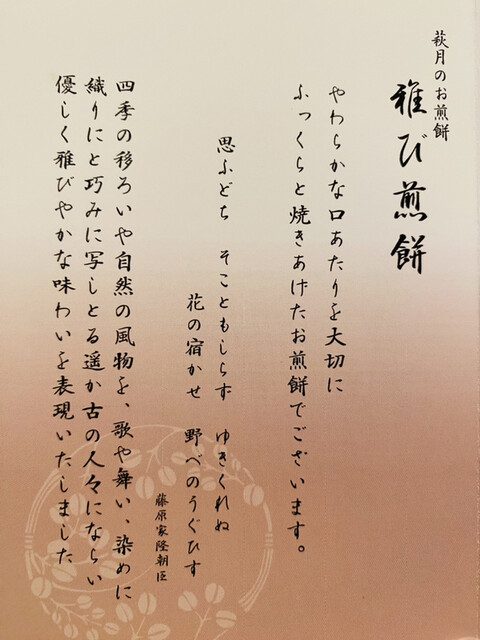 萩月のお煎餅
雅び煎餅
やわらかな口あたりを大切に
ふっくらと焼きあげたお煎餅でございます。
思ふどち　そこともしらず　ゆきくれぬ
花の宿かせ　野べのうぐひす
藤原家隆朝臣
四季の移ろいや自然の風物を、歌や舞い、染めに
織りにと巧みに写しとる遥か古の人々にならい
優しく雅びやかな味わいを表現いたしました